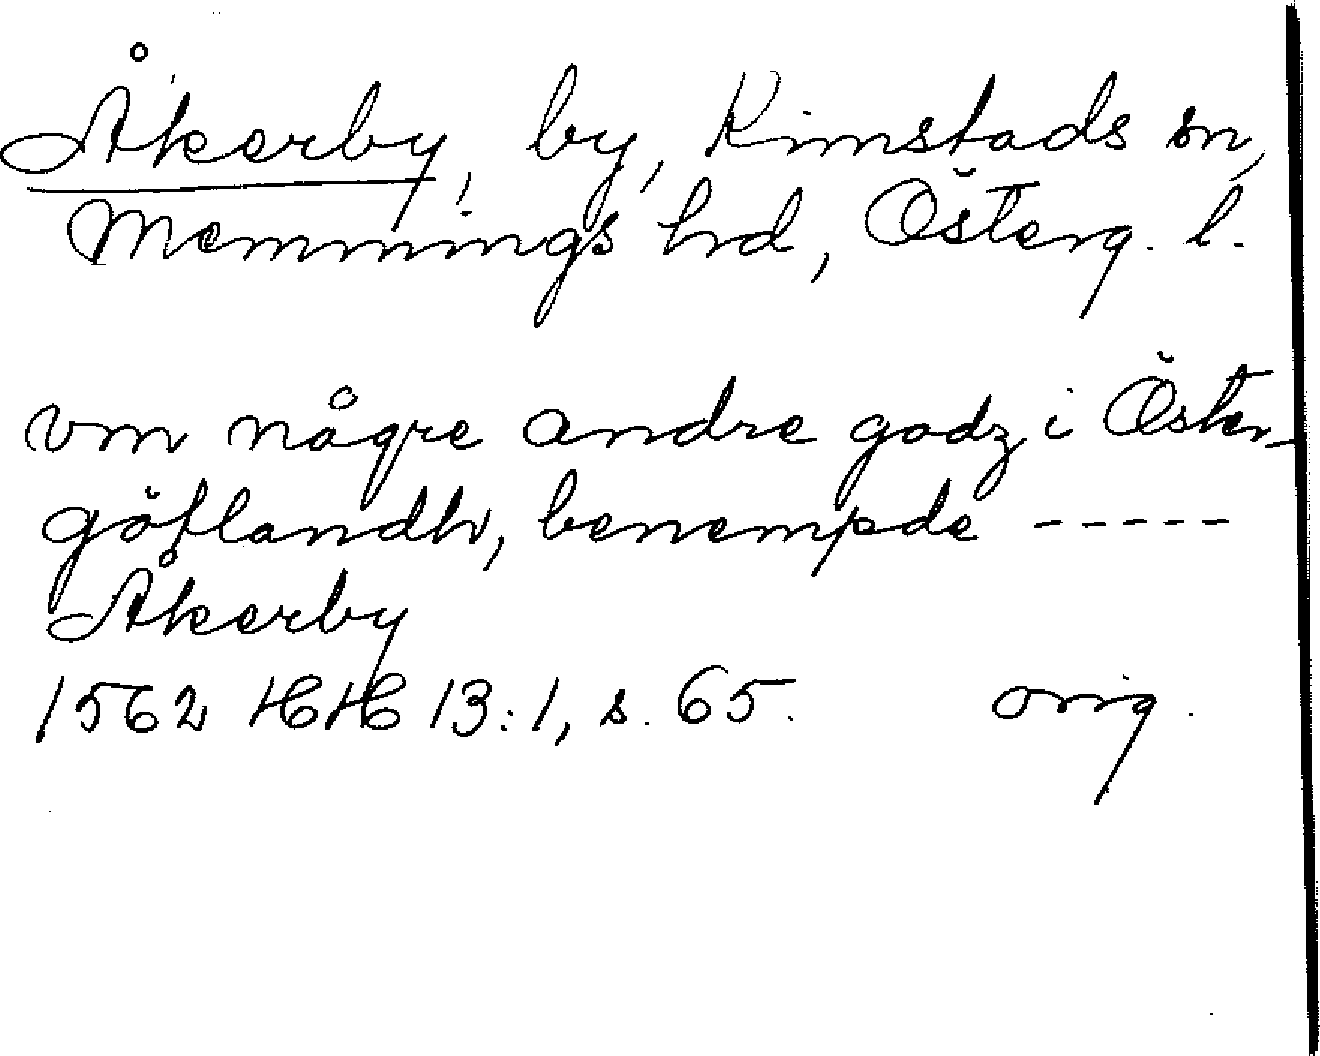 Åkerby, by, Kimstads sn,
Memmings hrd, Österg. l.
vm någre andre godz i Öster-
götlandh, benempde -----
Åkerby
1562 HH 13:1, s. 65. orig.